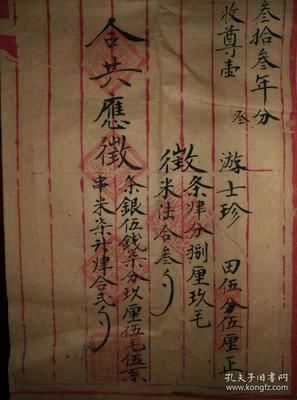 叁拾叁年分
收尊壶
游士珍 田伍分伍厘正
徵条肆分捌厘玖毛
米法合叁勺
合共應徵
条銀伍錢柒分玖厘伍毛伍系
串米柒升肆合弍勺
孔夫子旧书网